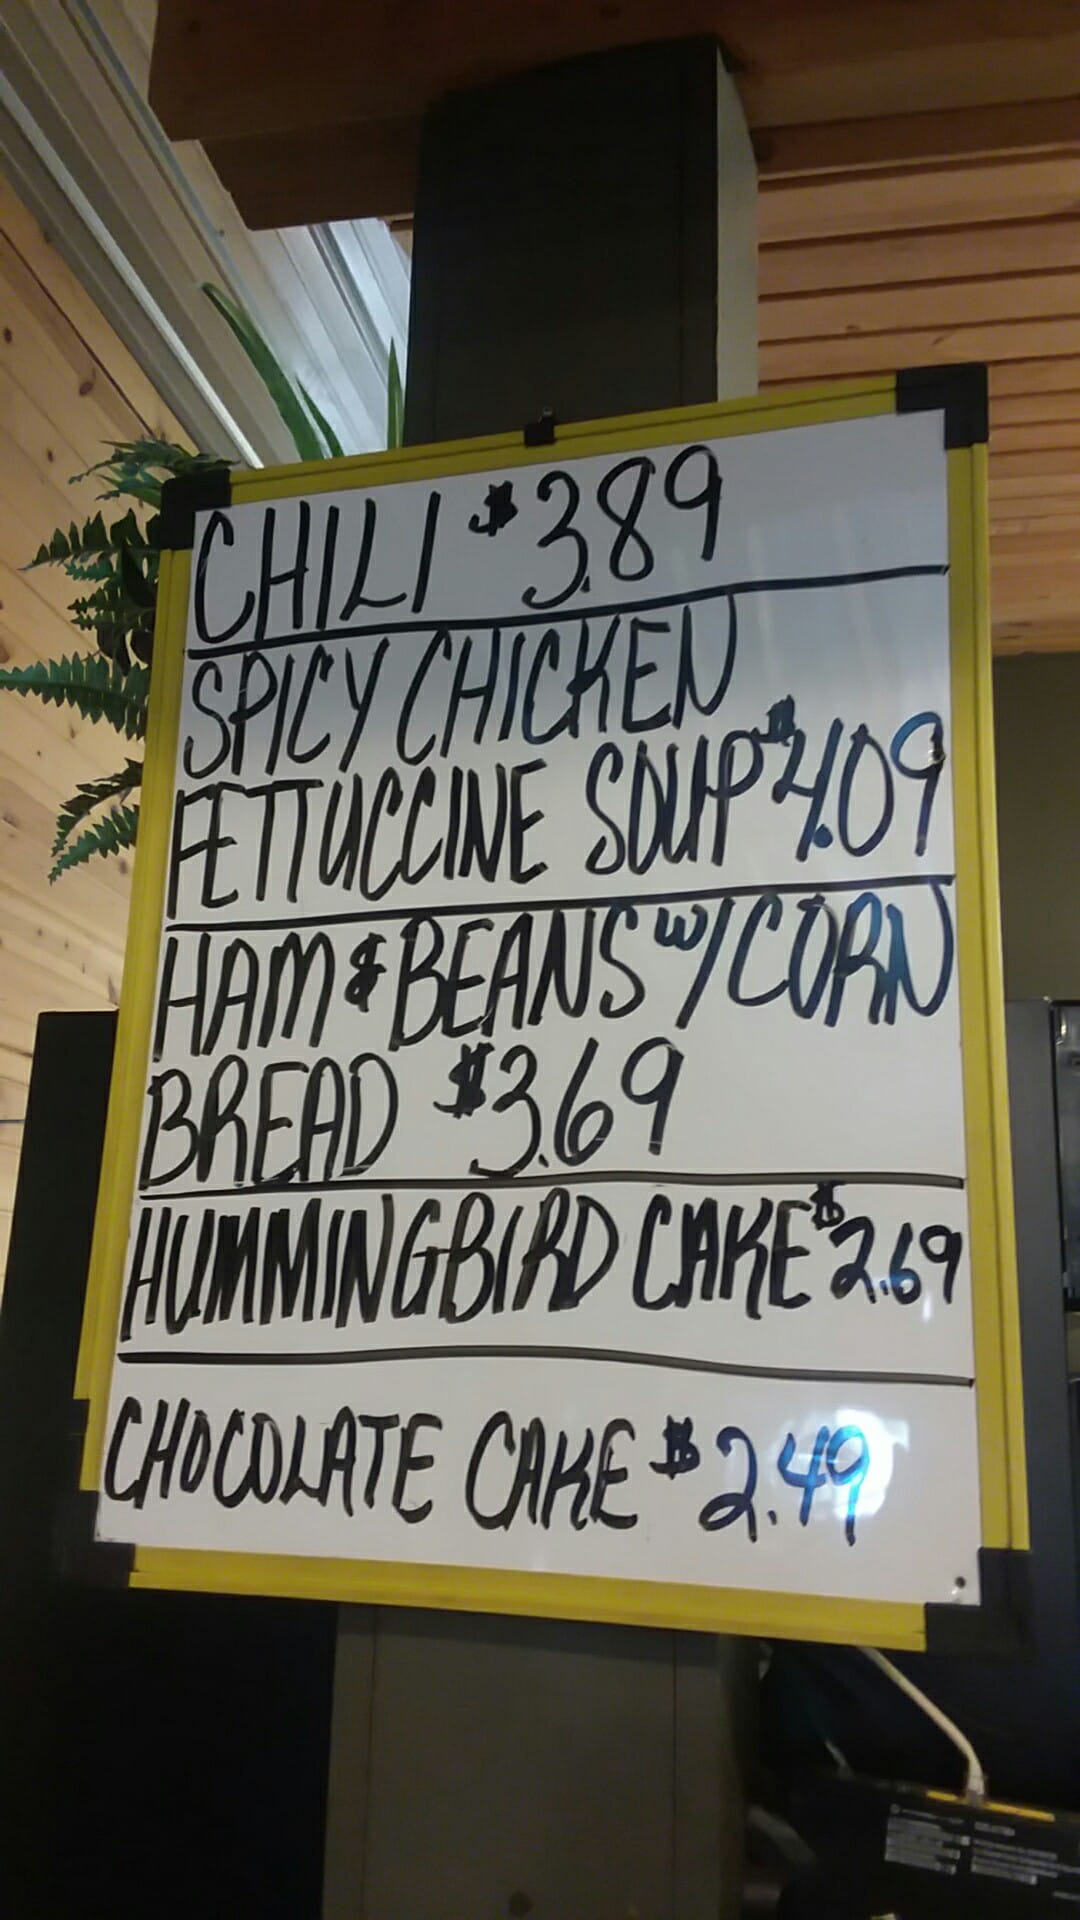 CHILI $3.89
SPICY CHICKEN
FETTUCCINE SOUP $4.09
HAM & BEANS W/ CORN
BREAD $3.69
HUMMINGBIRD CAKE $2.69
CHOCOLATE CAKE $2.49